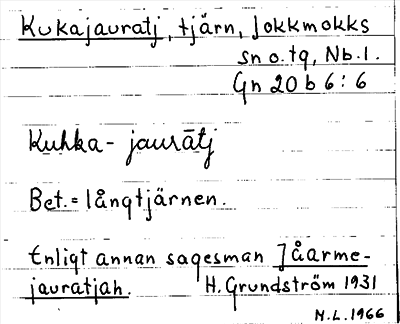 Kukajauratj, tjärn, Jokkmokks
sn o. tg, Nb. l.
Gn 20 b 6 : 6
Kuhka- jaurātj
Bet. = långtjärnen.
Enligt annan sagesman Jåarme-
jauratjah. H. Grundström 1931
M.L. 1966